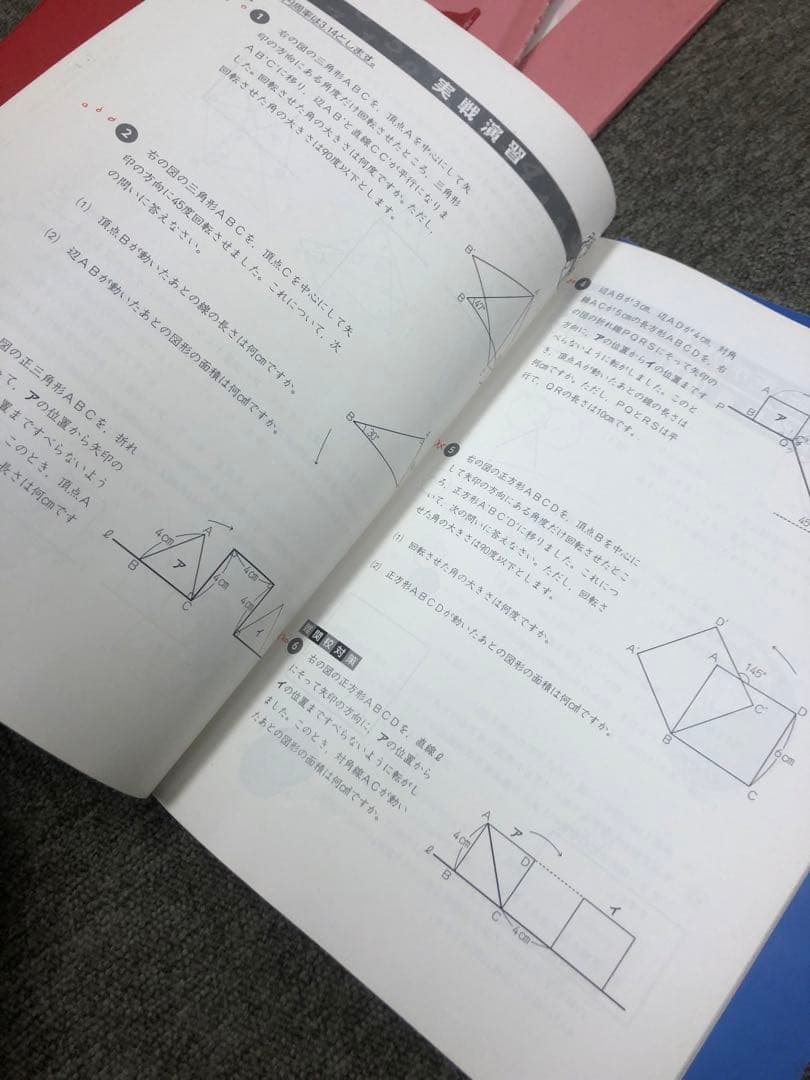 実戦演習
円周率は3.14とします。
1 右の図の三角形ABCを、頂点Aを中心にして矢
印の方向にある角度だけ回転させたところ、三角形
AB'C'に移り、辺AB'と直線CC'が平行になりま
した。回転させた角の大きさは何度ですか。ただし、
回転させた角の大きさは90度以下とします。
B'
B
47°
2 右の図の三角形ABCを、頂点Cを中心にして矢
印の方向に45度回転させました。これについて、次
の問いに答えなさい。
(1) 頂点Bが動いたあとの線の長さは何cmですか。
(2) 辺ABが動いたあとの図形の面積は何cm²ですか。
B
30°
A
図の正三角形ABCを、折れ
て、アの位置から矢印の
置まですべらないよう
このとき、頂点A
長さは何cmです
A
4cm
ア
ℓ
B
C
4cm
4cm
4cm
イ
4 辺ABが3cm、辺ADが4cm、対角
線ACが5cmの長方形ABCDを、右
の図の折れ線PQRSにそって矢印の
方向に、アの位置からイの位置まです
べらないように転がしました。このと
き、頂点Aが動いたあとの線の長さは
何cmですか。ただし、PQとRSは平
行で、QRの長さは10cmです。
A
ア
P
B
5 右の図の正方形ABCDを、頂点Bを中心に
して矢印の方向にある角度だけ回転させたとこ
ろ、正方形A'BC'D'に移りました。これにつ
いて、次の問いに答えなさい。ただし、回転さ
せた角の大きさは90度以下とします。
(1) 回転させた角の大きさは何度ですか。
(2) 正方形ABCDが動いたあとの図形の面積は何cm²ですか。
D'
A'
A
145°
C'
D
B
6cm
C
難関校対策
6 右の図の正方形ABCDを、直線ℓ
にそって矢印の方向に、アの位置から
イの位置まですべらないように転がし
ました。このとき、対角線ACが動い
たあとの図形の面積は何cm²ですか。
A
ア
4cm
D
ℓ
B
C
4cm
イ